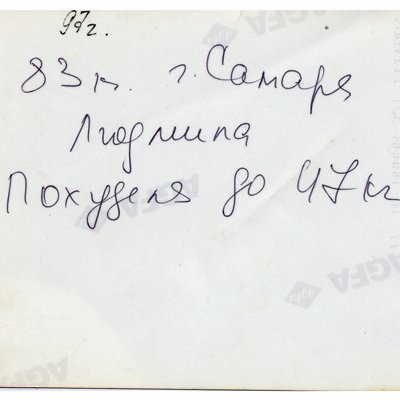 97г.
83к. г. Самара
Людмила
Похудела до 47кг
AGFA
AGFA
AGFA
AGFA